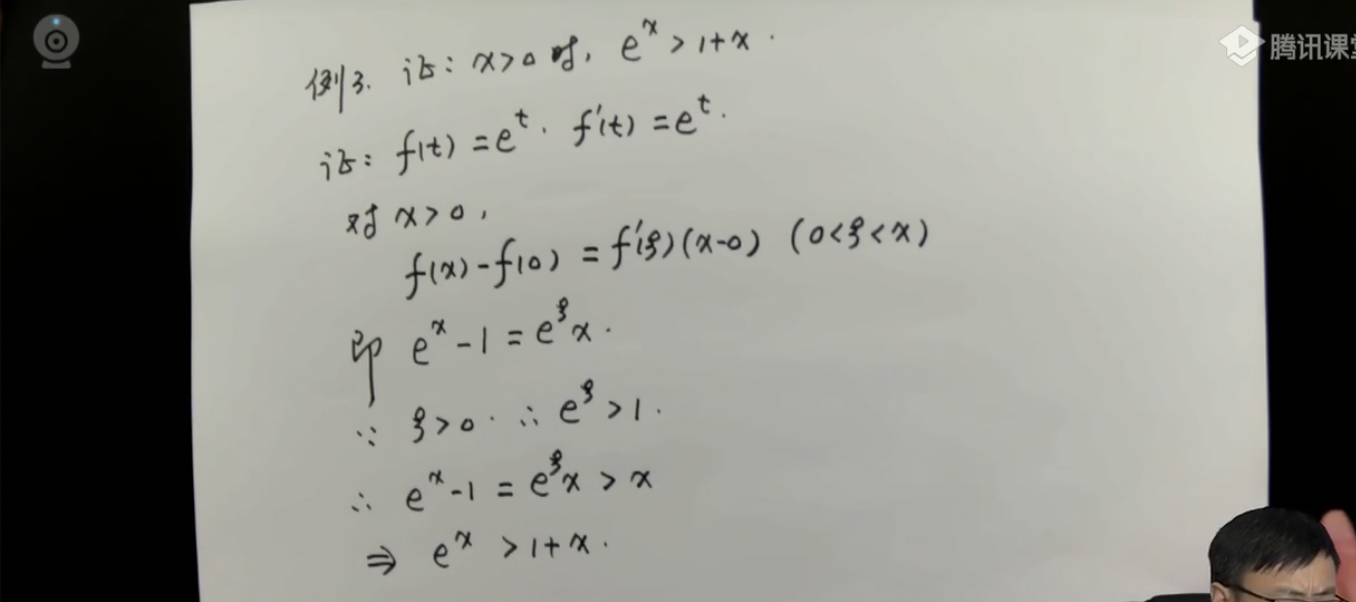 例3. 证: x>0时, e^x > 1+x.
腾讯课堂
证: f(t) = e^t. f'(t) = e^t.
对 x>0,
f(x)-f(0) = f'(ξ)(x-0) (0<ξ<x)
即 e^x -1 = e^ξ x.
∵ ξ>0. ∴ e^ξ >1.
∴ e^x -1 = e^ξ x > x
⇒ e^x > 1+x.